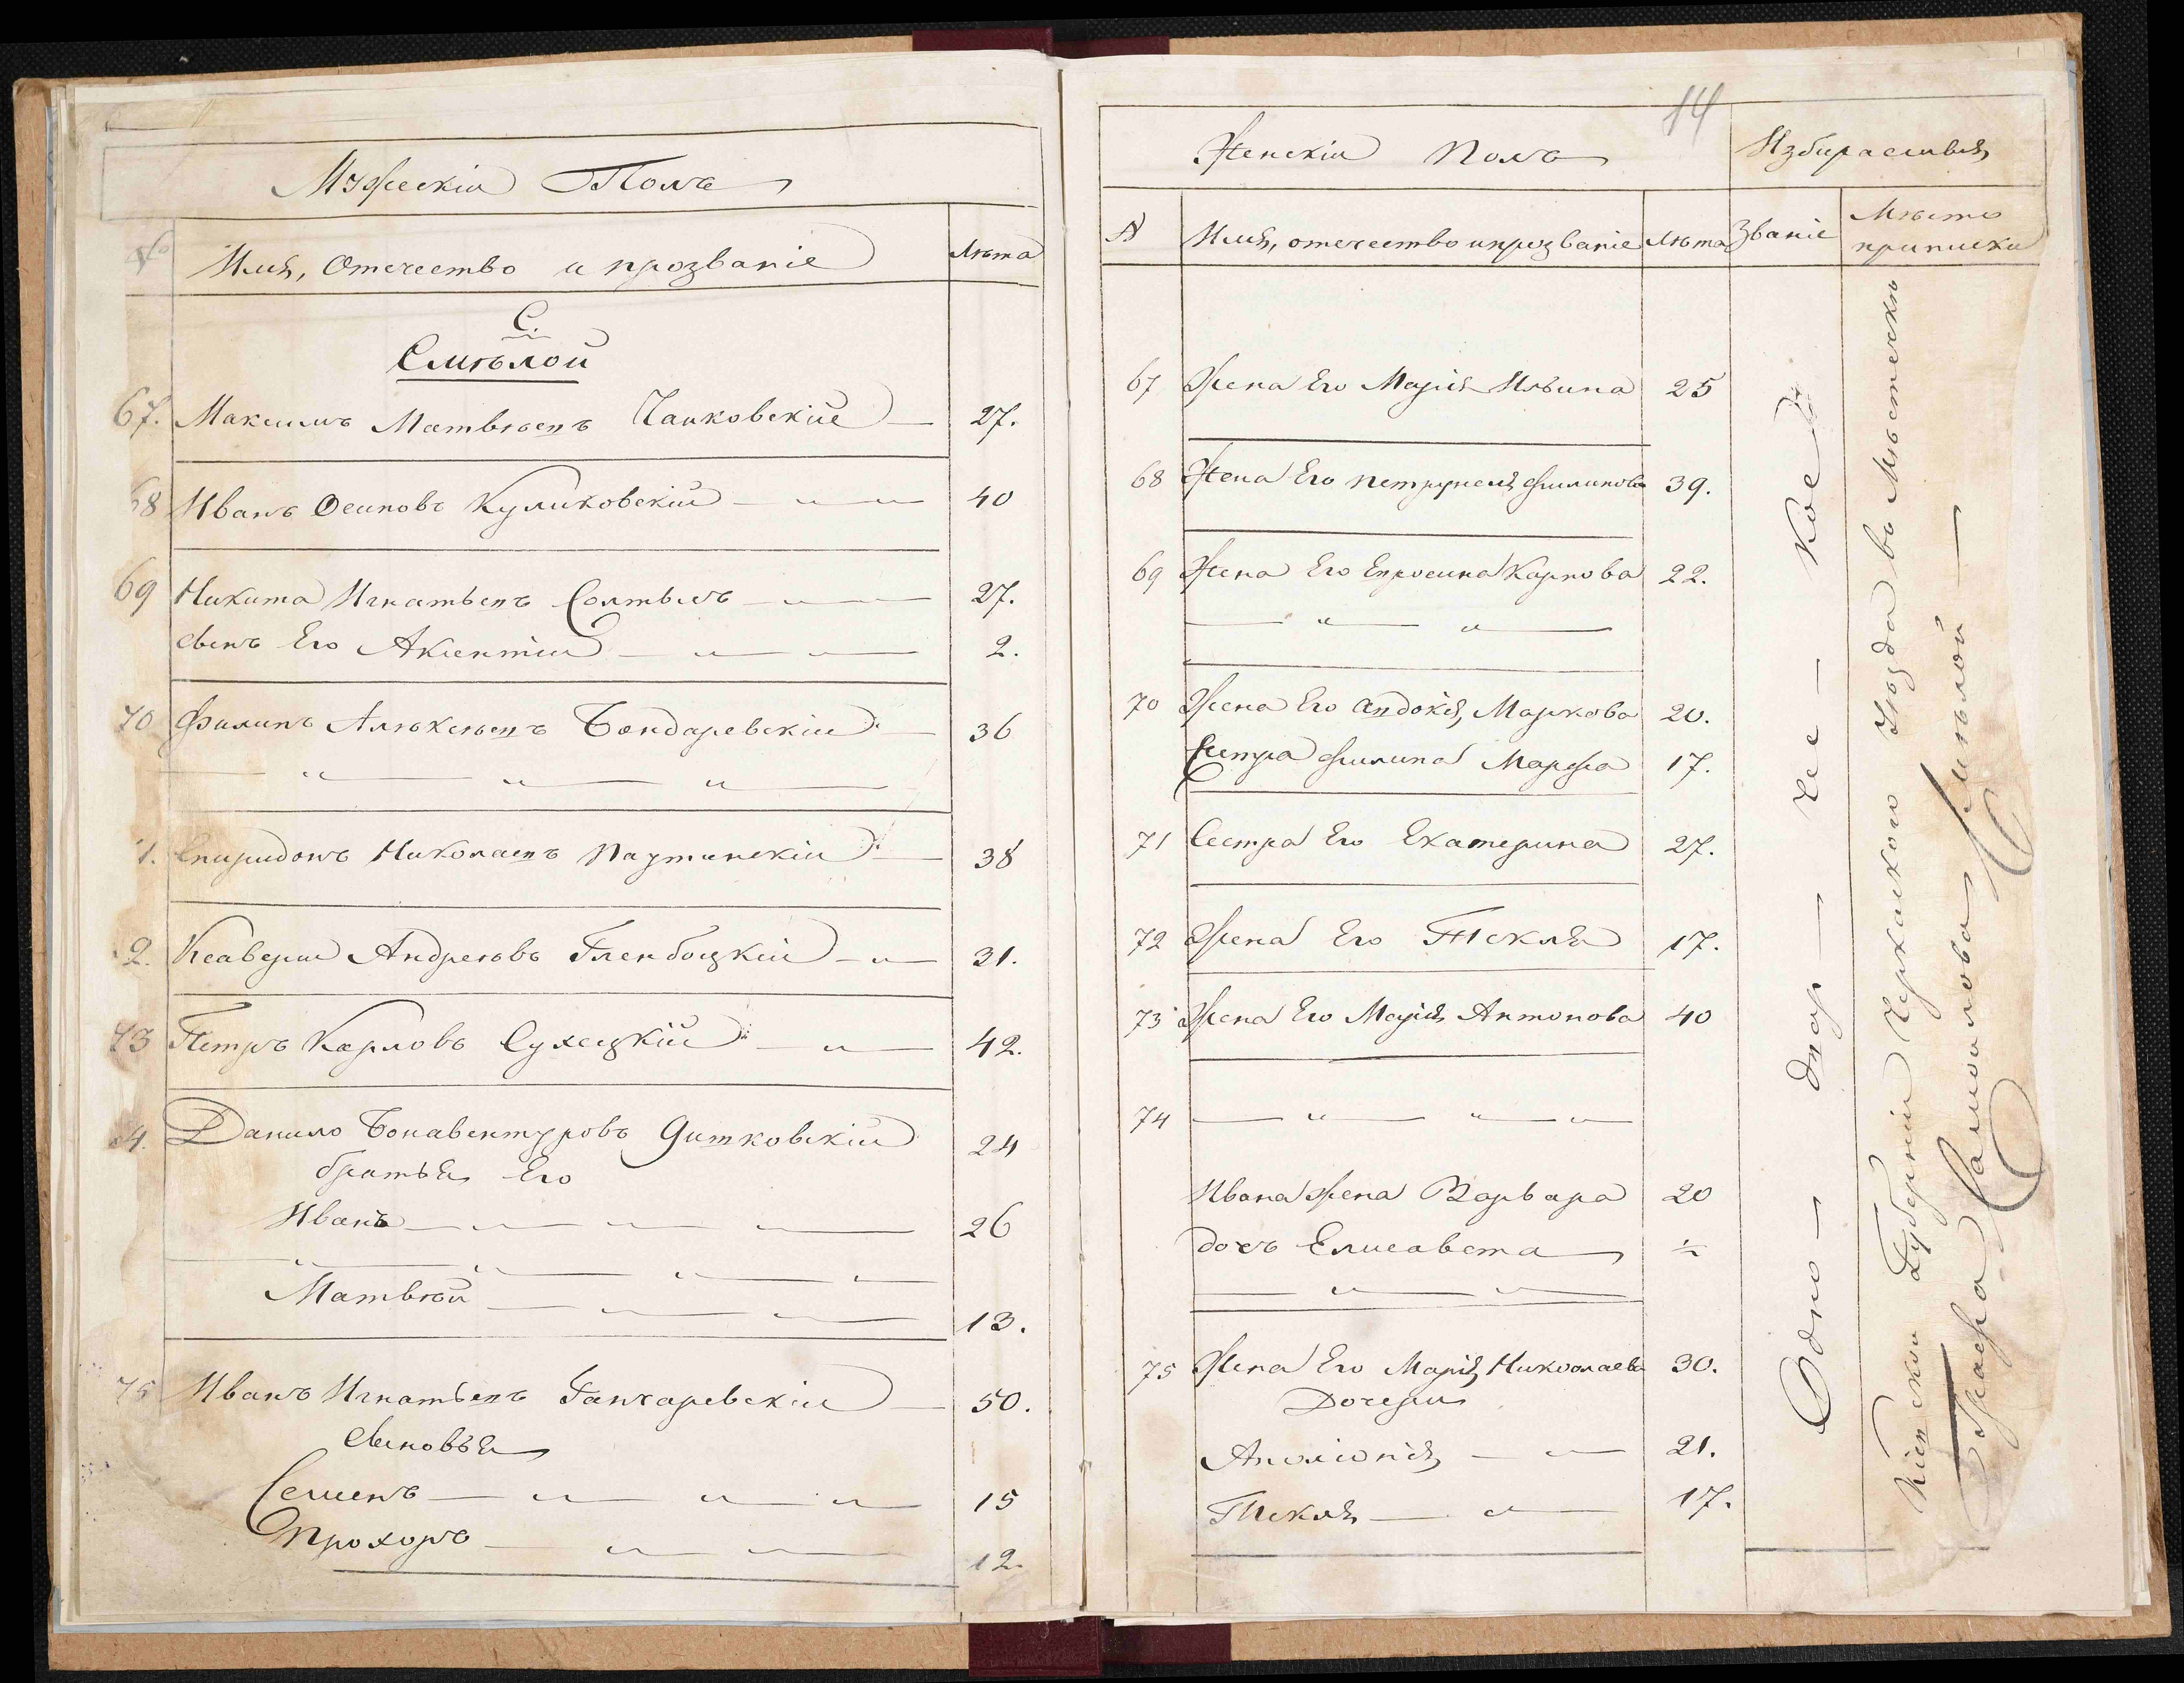 Мужескій Полъ
№ Имя, Отечество и прозваніе Лѣта
С.
Смѣлой
67. Максимъ Матвѣевъ Чайковскій — 27.
68 Иванъ Осиповъ Куликовскій — „ — „ — 40
69 Никита Игнатьевъ Солтысъ — „ — 27.
сынъ Его Аксентій — „ — „ — 2.
70 Филипъ Алѣксѣевъ Бондаревскій — 36
— „ — „ — „ —
1. Спиридонъ Николаевъ Паутинскій — 38
2. Ксаверій Андреѣвъ Гленбоцкій — „ — 31.
73 Петръ Карловъ Сухецкій — „ — 42.
4. Данило Бонавентуровъ Дитковскій 24
братья Его
Иванъ — „ — „ — „ — 26
— „ — „ — „ — „ —
Матвѣй — „ — „ — 13.
75 Иванъ Игнатьевъ Ганчаревскій — 50.
сыновья
Семенъ — „ — „ — „ — 15
Прохоръ — „ — „ — 12.
14
Женскій Полъ
№ Имя, отечество и прозваніе Лѣта Званіе Мѣсто приписки
67 Жена Его Марія Ильина 25
68 Жена Его Петрунеля Филипова 39.
69 Жена Его Епросина Карпова 22.
— „ — „ —
70 Жена Его Авдокія Маркова 20.
Сестра Филипа Марфа 17.
71 Сестра Его Екатерина 27.
72 Жена Его Текля 17.
73 Жена Его Марія Антонова 40
74 — „ — „ — „ —
Ивана жена Варвара 20
дочь Елисавета ½
— „ — „ —
75 Жена Его Марія Николаева 30.
Дочери
Аполіонія — „ — 21.
Текля — „ — 17.
Одно — двор — че — кое
Кіевской Губерніи Черкаского Уѣзда въ Мѣстечкѣ
Графа Самойлова Смѣлой —